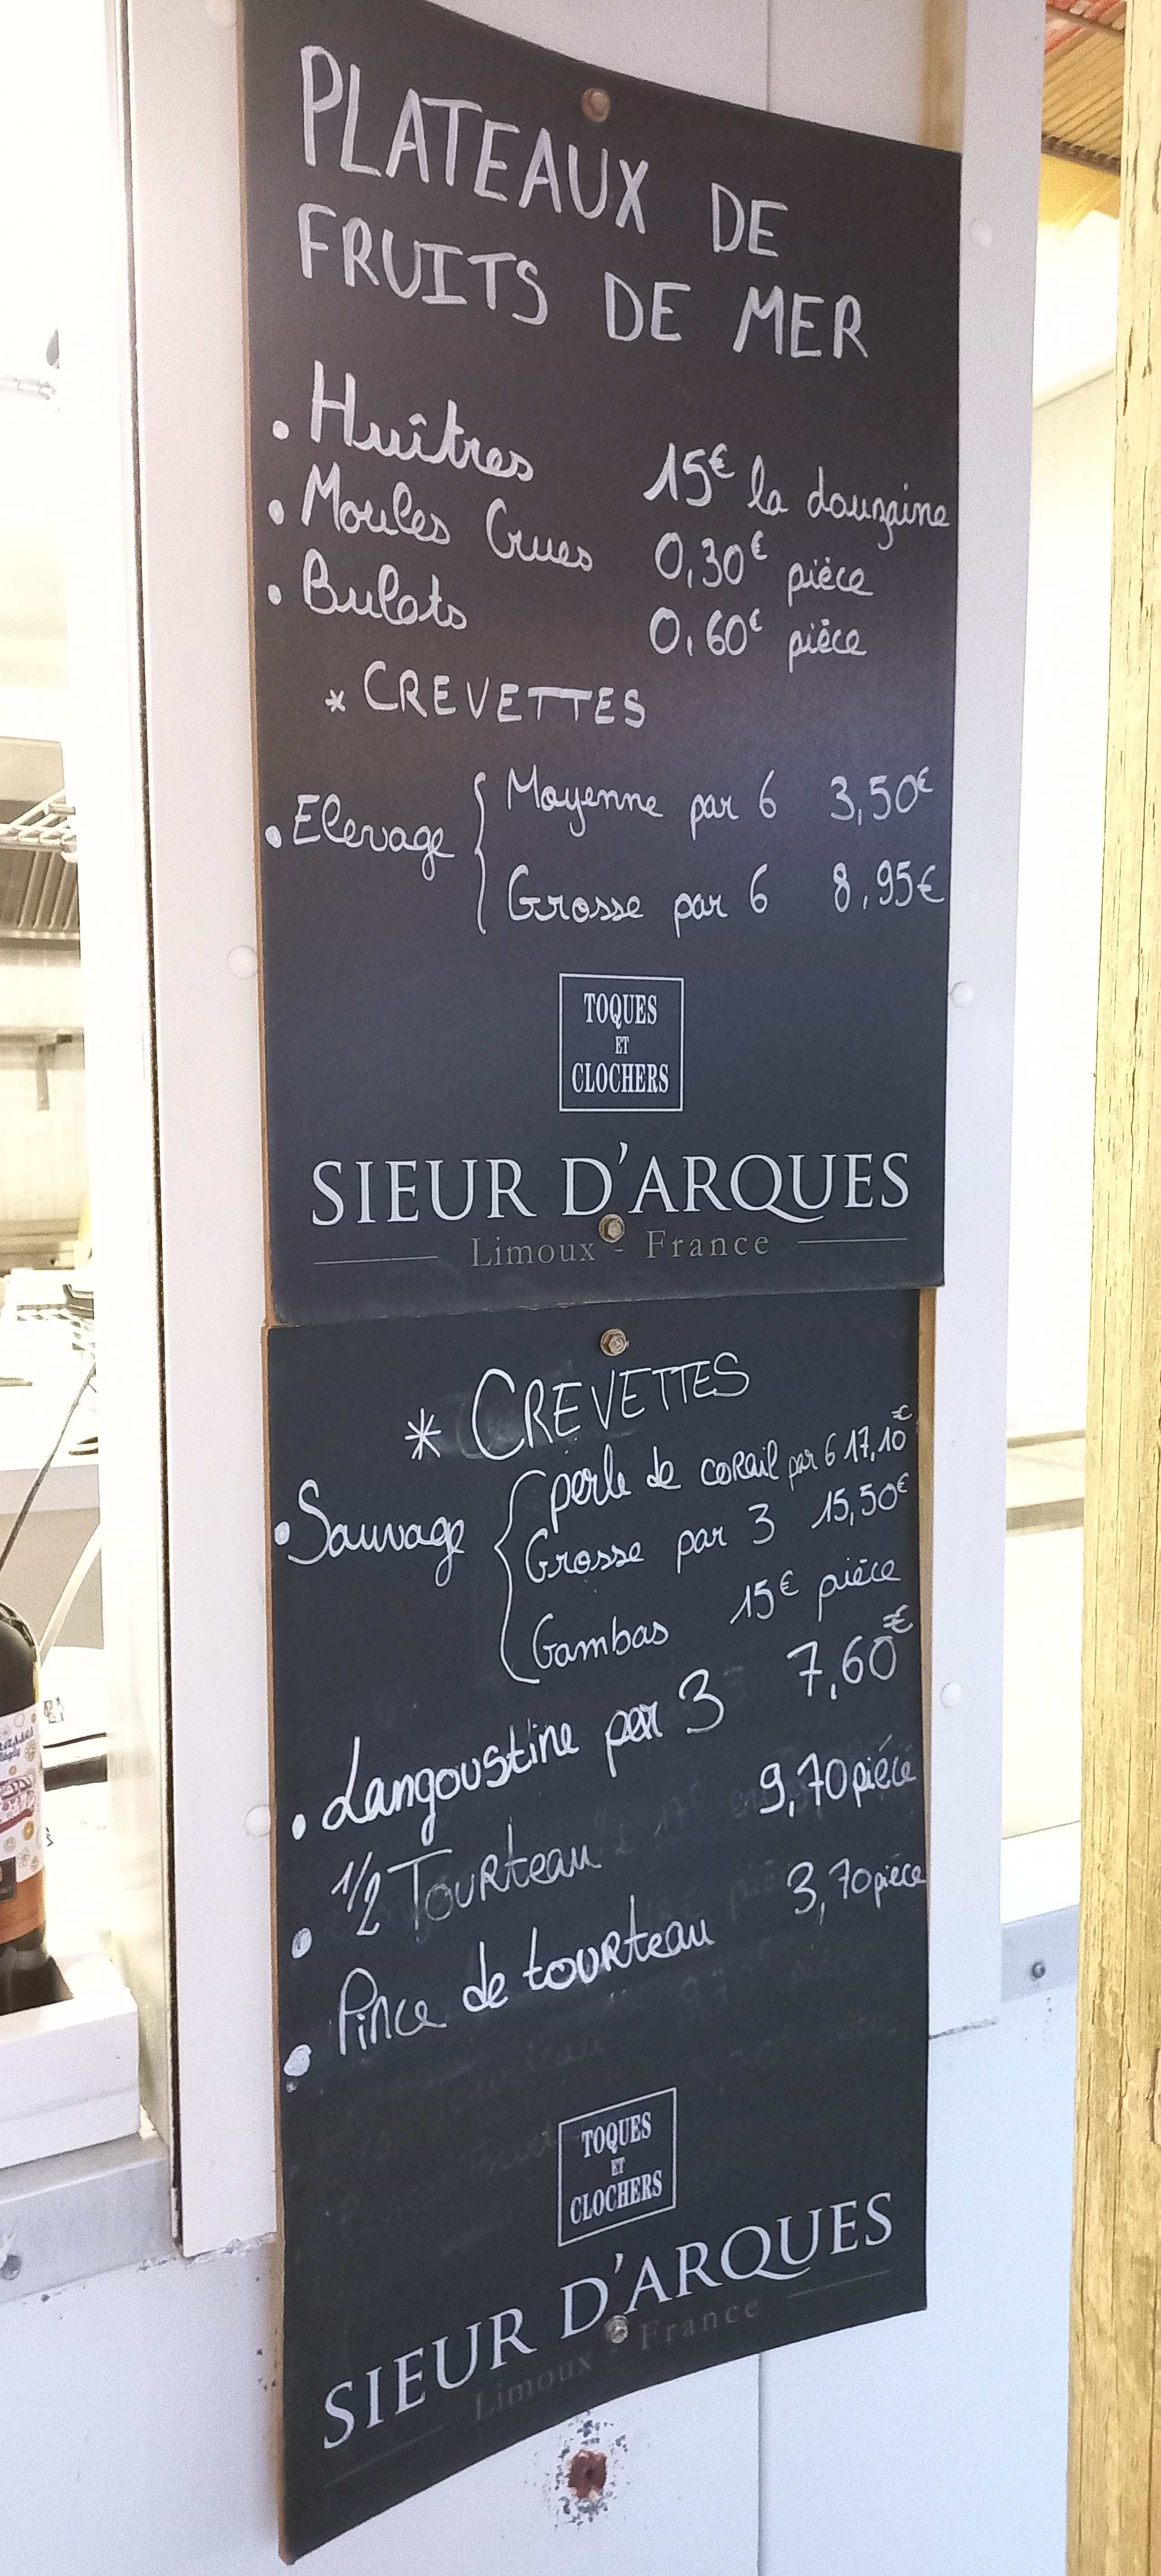 PLATEAUX DE
FRUITS DE MER
• Huîtres 15€ la douzaine
• Moules Crues 0,30€ pièce
• Bulots 0,60€ pièce
* CREVETTES
• Elevage { Moyenne par 6 3,50€
Grosse par 6 8,95€
TOQUES
ET
CLOCHERS
SIEUR D'ARQUES
Limoux - France
* CREVETTES
• Sauvage { perle de corail par 6 17,10€
Grosse par 3 15,50€
Gambas 15€ pièce
• Langoustine par 3 7,60€
• 1/2 Tourteau 9,70 pièce
• Pince de tourteau 3,70 pièce
TOQUES
ET
CLOCHERS
SIEUR D'ARQUES
Limoux - France